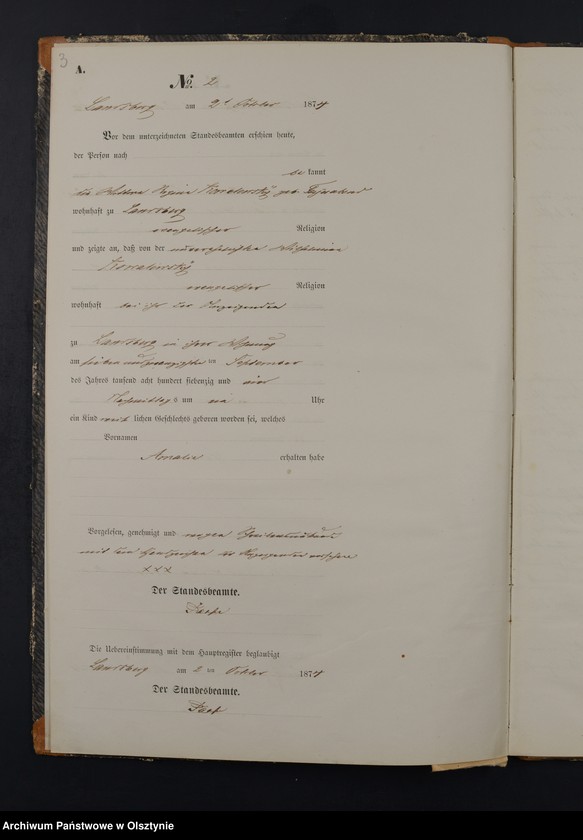 3
A.
No. 2
Landsberg am 2t October 1874
Vor dem unterzeichneten Standesbeamten erschien heute,
der Person nach
be kannt
die Wittwe Regina Kowalewsky geb.
wohnhaft zu Landsberg
evangelischer Religion
und zeigte an, daß von der unverehelichte Wilhelmine
Kowalewsky
evangelischer Religion
wohnhaft bei ihr der Anzeigenden
zu Landsberg in ihrer Wohnung
am sieben und zwanzigsten September
des Jahres tausend acht hundert siebenzig und vier
Nachmittags um ein Uhr
ein Kind weiblichen Geschlechts geboren worden sei, welches
Vornamen
Amalie erhalten habe
Vorgelesen, genehmigt und wegen
mit dem Handzeichen der Anzeigenden versehen
XXX
Der Standesbeamte.
Die Uebereinstimmung mit dem Hauptregister beglaubigt
Landsberg am 2 ten October 1874
Der Standesbeamte.
Archiwum Państwowe w Olsztynie